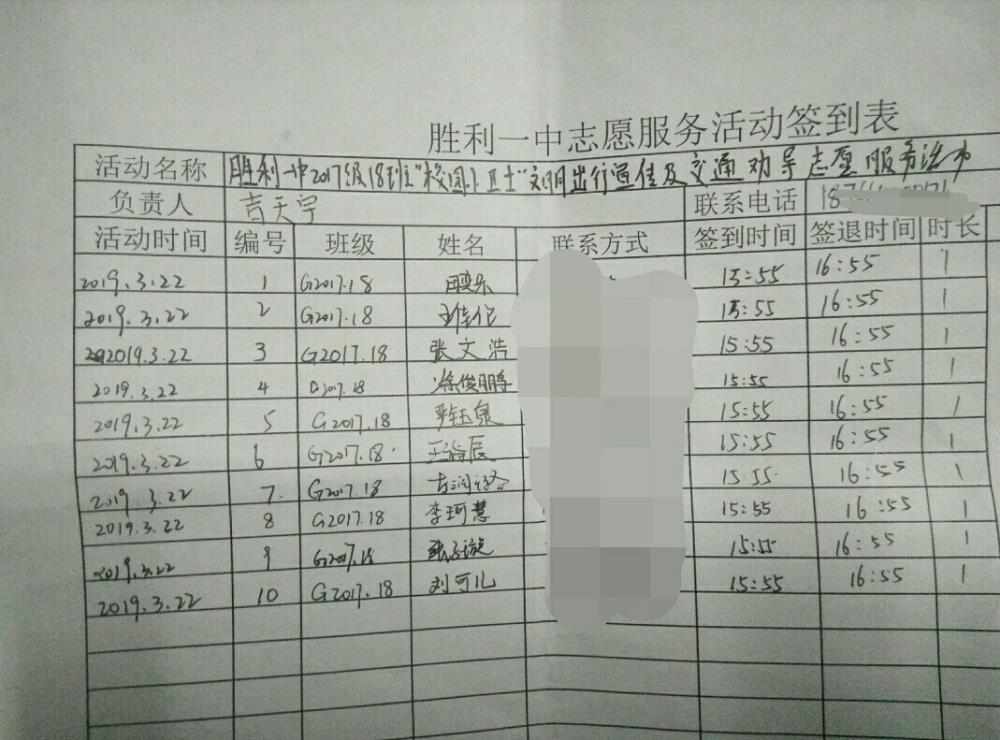 胜利一中志愿服务活动签到表
活动名称 胜利一中2017级18班"校园小卫士"文明出行宣传及交通劝导志愿服务活动
负责人 吉天宇 联系电话 187
活动时间 编号 班级 姓名 联系方式 签到时间 签退时间 时长
2019.3.22 1 G2017.18 15:55 16:55 1
2019.3.22 2 G2017.18 15:55 16:55 1
2019.3.22 3 G2017.18 张文浩 15:55 16:55 1
2019.3.22 4 G2017.18 徐俊鹏 15:55 16:55 1
2019.3.22 5 G2017.18 15:55 16:55 1
2019.3.22 6 G2017.18 15:55 16:55 1
2019.3.22 7 G2017.18 15:55 16:55 1
2019.3.22 8 G2017.18 李珂慧 15:55 16:55 1
2019.3.22 9 G2017.18 15:55 16:55 1
2019.3.22 10 G2017.18 刘可儿 15:55 16:55 1